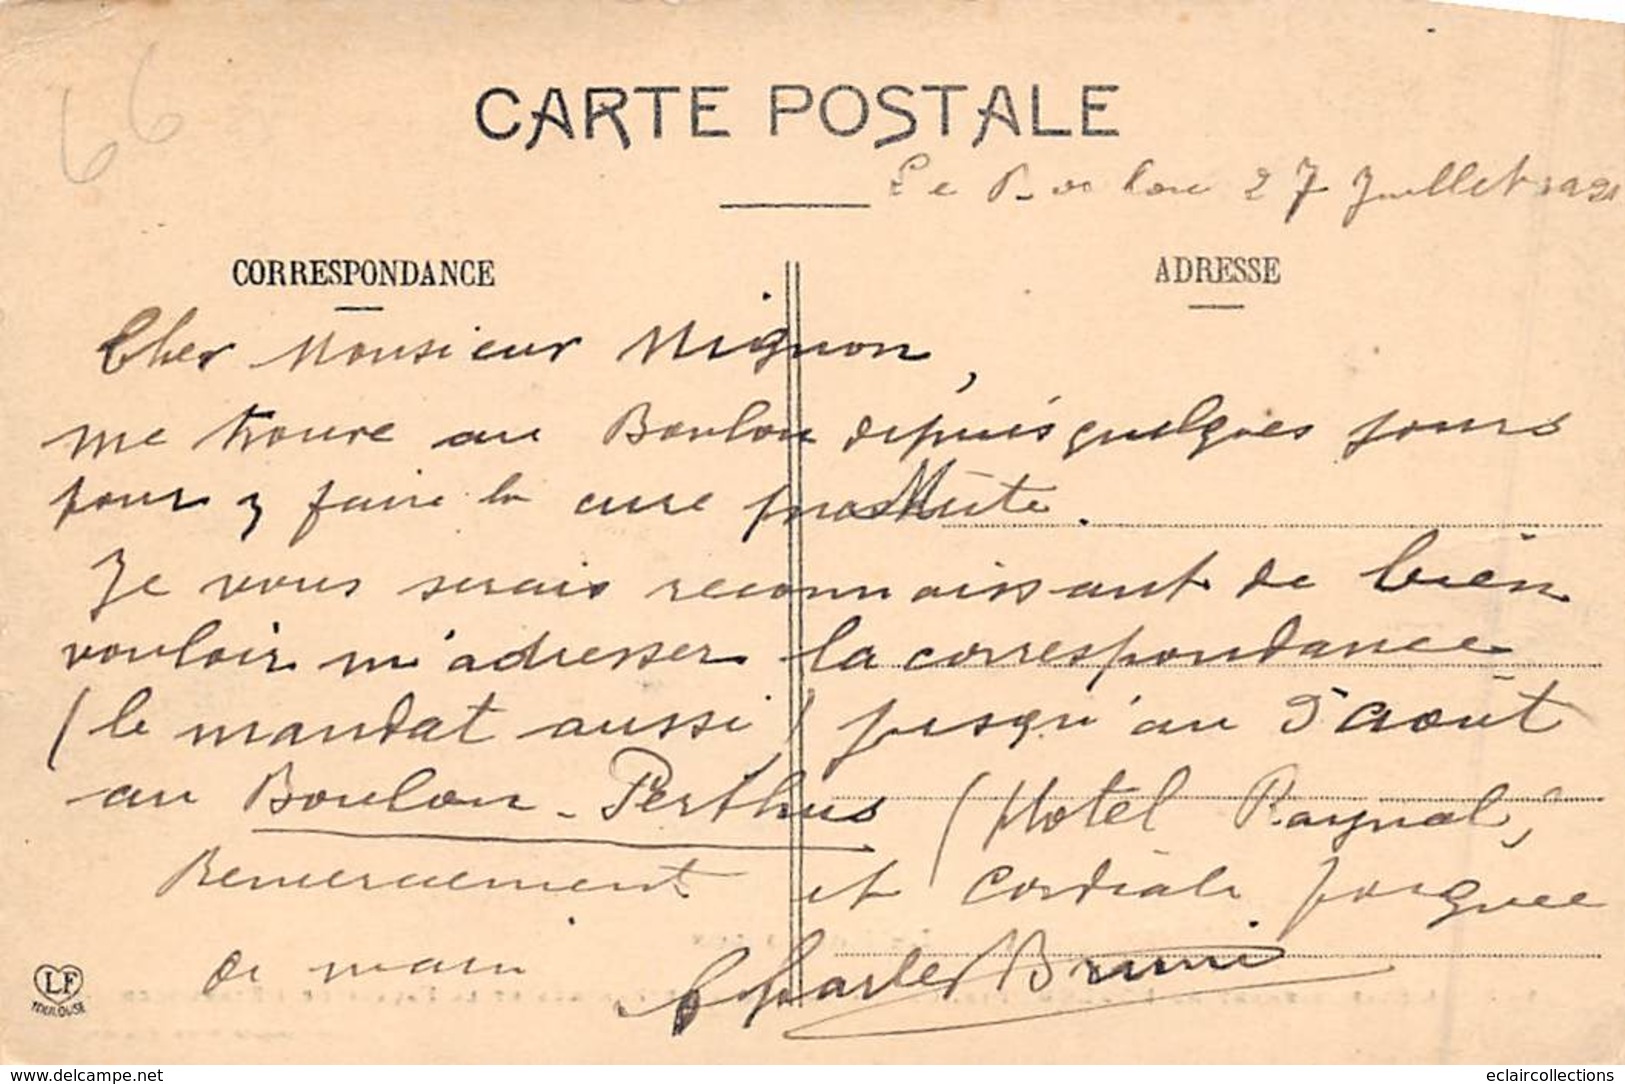 66
CARTE POSTALE
Le Boulou 27 Juillet 1921
CORRESPONDANCE
ADRESSE
Cher Monsieur Mignon,
me trouve au Boulou depuis quelques jours
pour y faire la cure
Je vous serais reconnaissant de bien
vouloir m'adresser la correspondance
(le mandat aussi) jusqu'au 5 août
au Boulou-Perthus (Hotel Raynal,
Remerciement et cordiale poignée
de main
Charles Bruni
LF
TOULOUSE
www.delcampe.net
eclaircollections